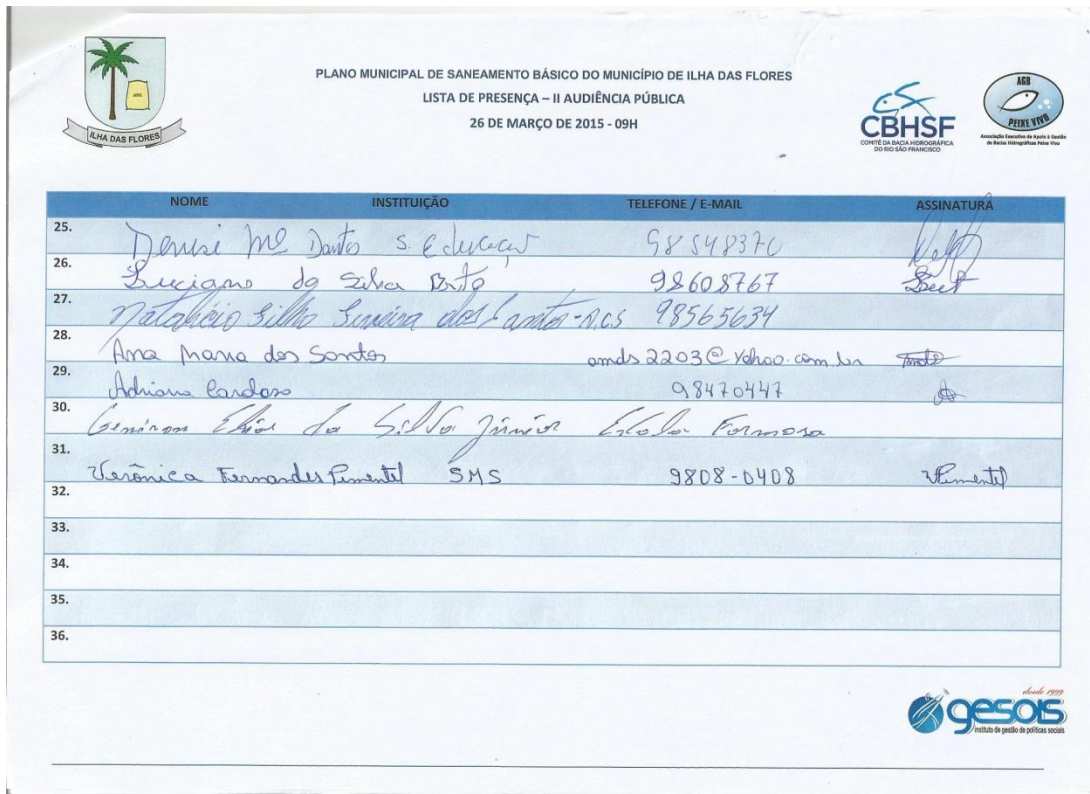 ILHA DAS FLORES
PLANO MUNICIPAL DE SANEAMENTO BÁSICO DO MUNICÍPIO DE ILHA DAS FLORES
LISTA DE PRESENÇA – II AUDIÊNCIA PÚBLICA
26 DE MARÇO DE 2015 - 09H
CBHSF
COMITÊ DA BACIA HIDROGRÁFICA
DO RIO SÃO FRANCISCO
AGB
PEIXE VIVO
Associação Executiva de Apoio à Gestão
de Bacias Hidrográficas Peixe Vivo
NOME INSTITUIÇÃO TELEFONE / E-MAIL ASSINATURA
25. Denise Mª S. Educação 98548370
26. Luciano da Silva Brito 98608767
27. Filho dos Santos - 98565634
28. Ana Maria dos Santos amds2203@yahoo.com.br
29. Adriana Cardoso 98470447
30. da Silva Júnior Escola Formosa
31. Verônica Fernandes Pimentel SMS 9808-0408 VPimentel
32.
33.
34.
35.
36.
desde 1999
gesois
instituto de gestão de políticas sociais